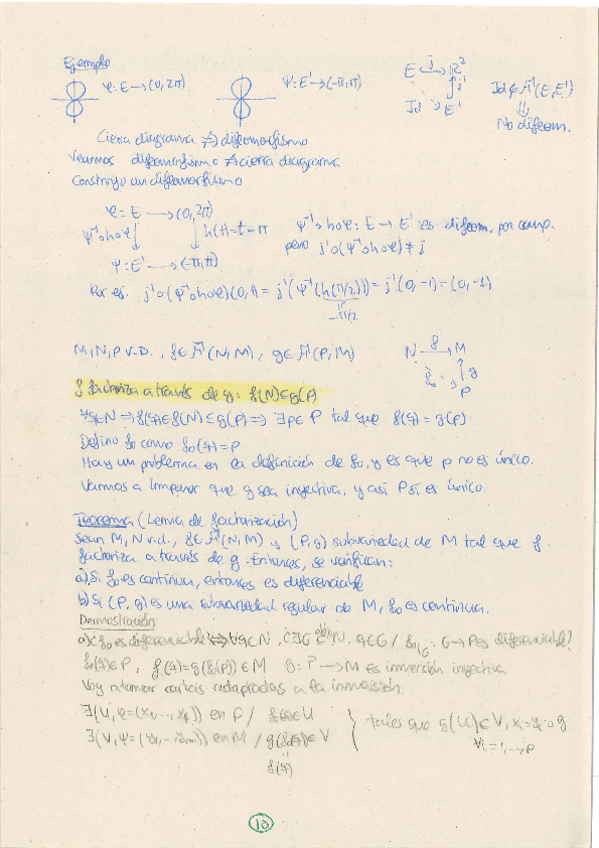 Ejemplo
φ: E → (0, 2π)
ψ: E' → (-π, π)
E j ℝ²
j'
Id E'
Id ∉ ℱ(E, E')
⇓
No difeom.
Cierra diagrama ⇏ difeomorfismo
Veamos difeomorfismo ⇏ cierra diagrama
Construyo un difeomorfismo
φ: E → (0, 2π)
ψ⁻¹∘h∘φ ↓ ↓ h(t)=t-π
ψ: E' → (-π, π)
ψ⁻¹∘h∘φ: E → E' es difeom. por comp.
pero j'∘(ψ⁻¹∘h∘φ) ≠ j
Por ej. j'∘(ψ⁻¹∘h∘φ)(0,1) = j'(ψ⁻¹(h(π/2))) = j'(0,-1) = (0,-1)
-π/2
M, N, P v.D., f∈ℱ(N,M), g∈ℱ(P,M)
N f M
f₀ g
P
f factoriza a través de g: f(N)⊆g(P)
∀q∈N ⇒ f(q)∈f(N)⊆g(P) ⇒ ∃p∈P tal que f(q)=g(p)
Defino f₀ como f₀(q)=p
Hay un problema en la definición de f₀, y es que p no es único.
Vamos a imponer que g sea inyectiva, y así P sí es único.
Teorema (Lema de factorización)
Sean M, N v.d., f∈ℱ(N,M) y (P,g) subvariedad de M tal que f
factoriza a través de g. Entonces, se verifican:
a) Si f₀ es continua, entonces es diferenciable
b) Si (P,g) es una subvariedad regular de M, f₀ es continua.
Demostración
a) ¿f₀ es diferenciable ⇔ ∀q∈N, ¿∃G abto N, q∈G / f₀|G: G→P es diferenciable?
f₀(q)∈P, f(q)=g(f₀(q))∈M g: P→M es inmersión inyectiva
Voy a tomar cartas adaptadas a la inmersión:
∃(U, φ=(x₁,...,xₚ)) en P / f₀(q)∈U
∃(V, ψ=(y₁,...,yₘ)) en M / g(f₀(q))∈V
f(q)
tales que g(U)⊆V, xᵢ=yᵢ∘g
∀i=1,...,p
10